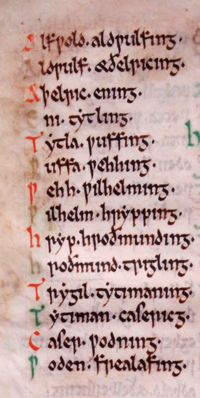 Alfƿold · aldƿulfing ·
Aldƿulf · æðelricing ·
Aþelric · ening ·
Eni · tytling ·
Tytla · ƿuffing ·
Ƿuffa · ƿehhing ·
Ƿehh · ƿilhelming ·
Ƿilhelm · hrypping ·
Hryp · hroðmunding ·
Hroðmund · trigling ·
Trygil · tytimaning ·
Tytiman · casericg ·
Caser · ƿodning ·
Ƿoden · frealafing ·